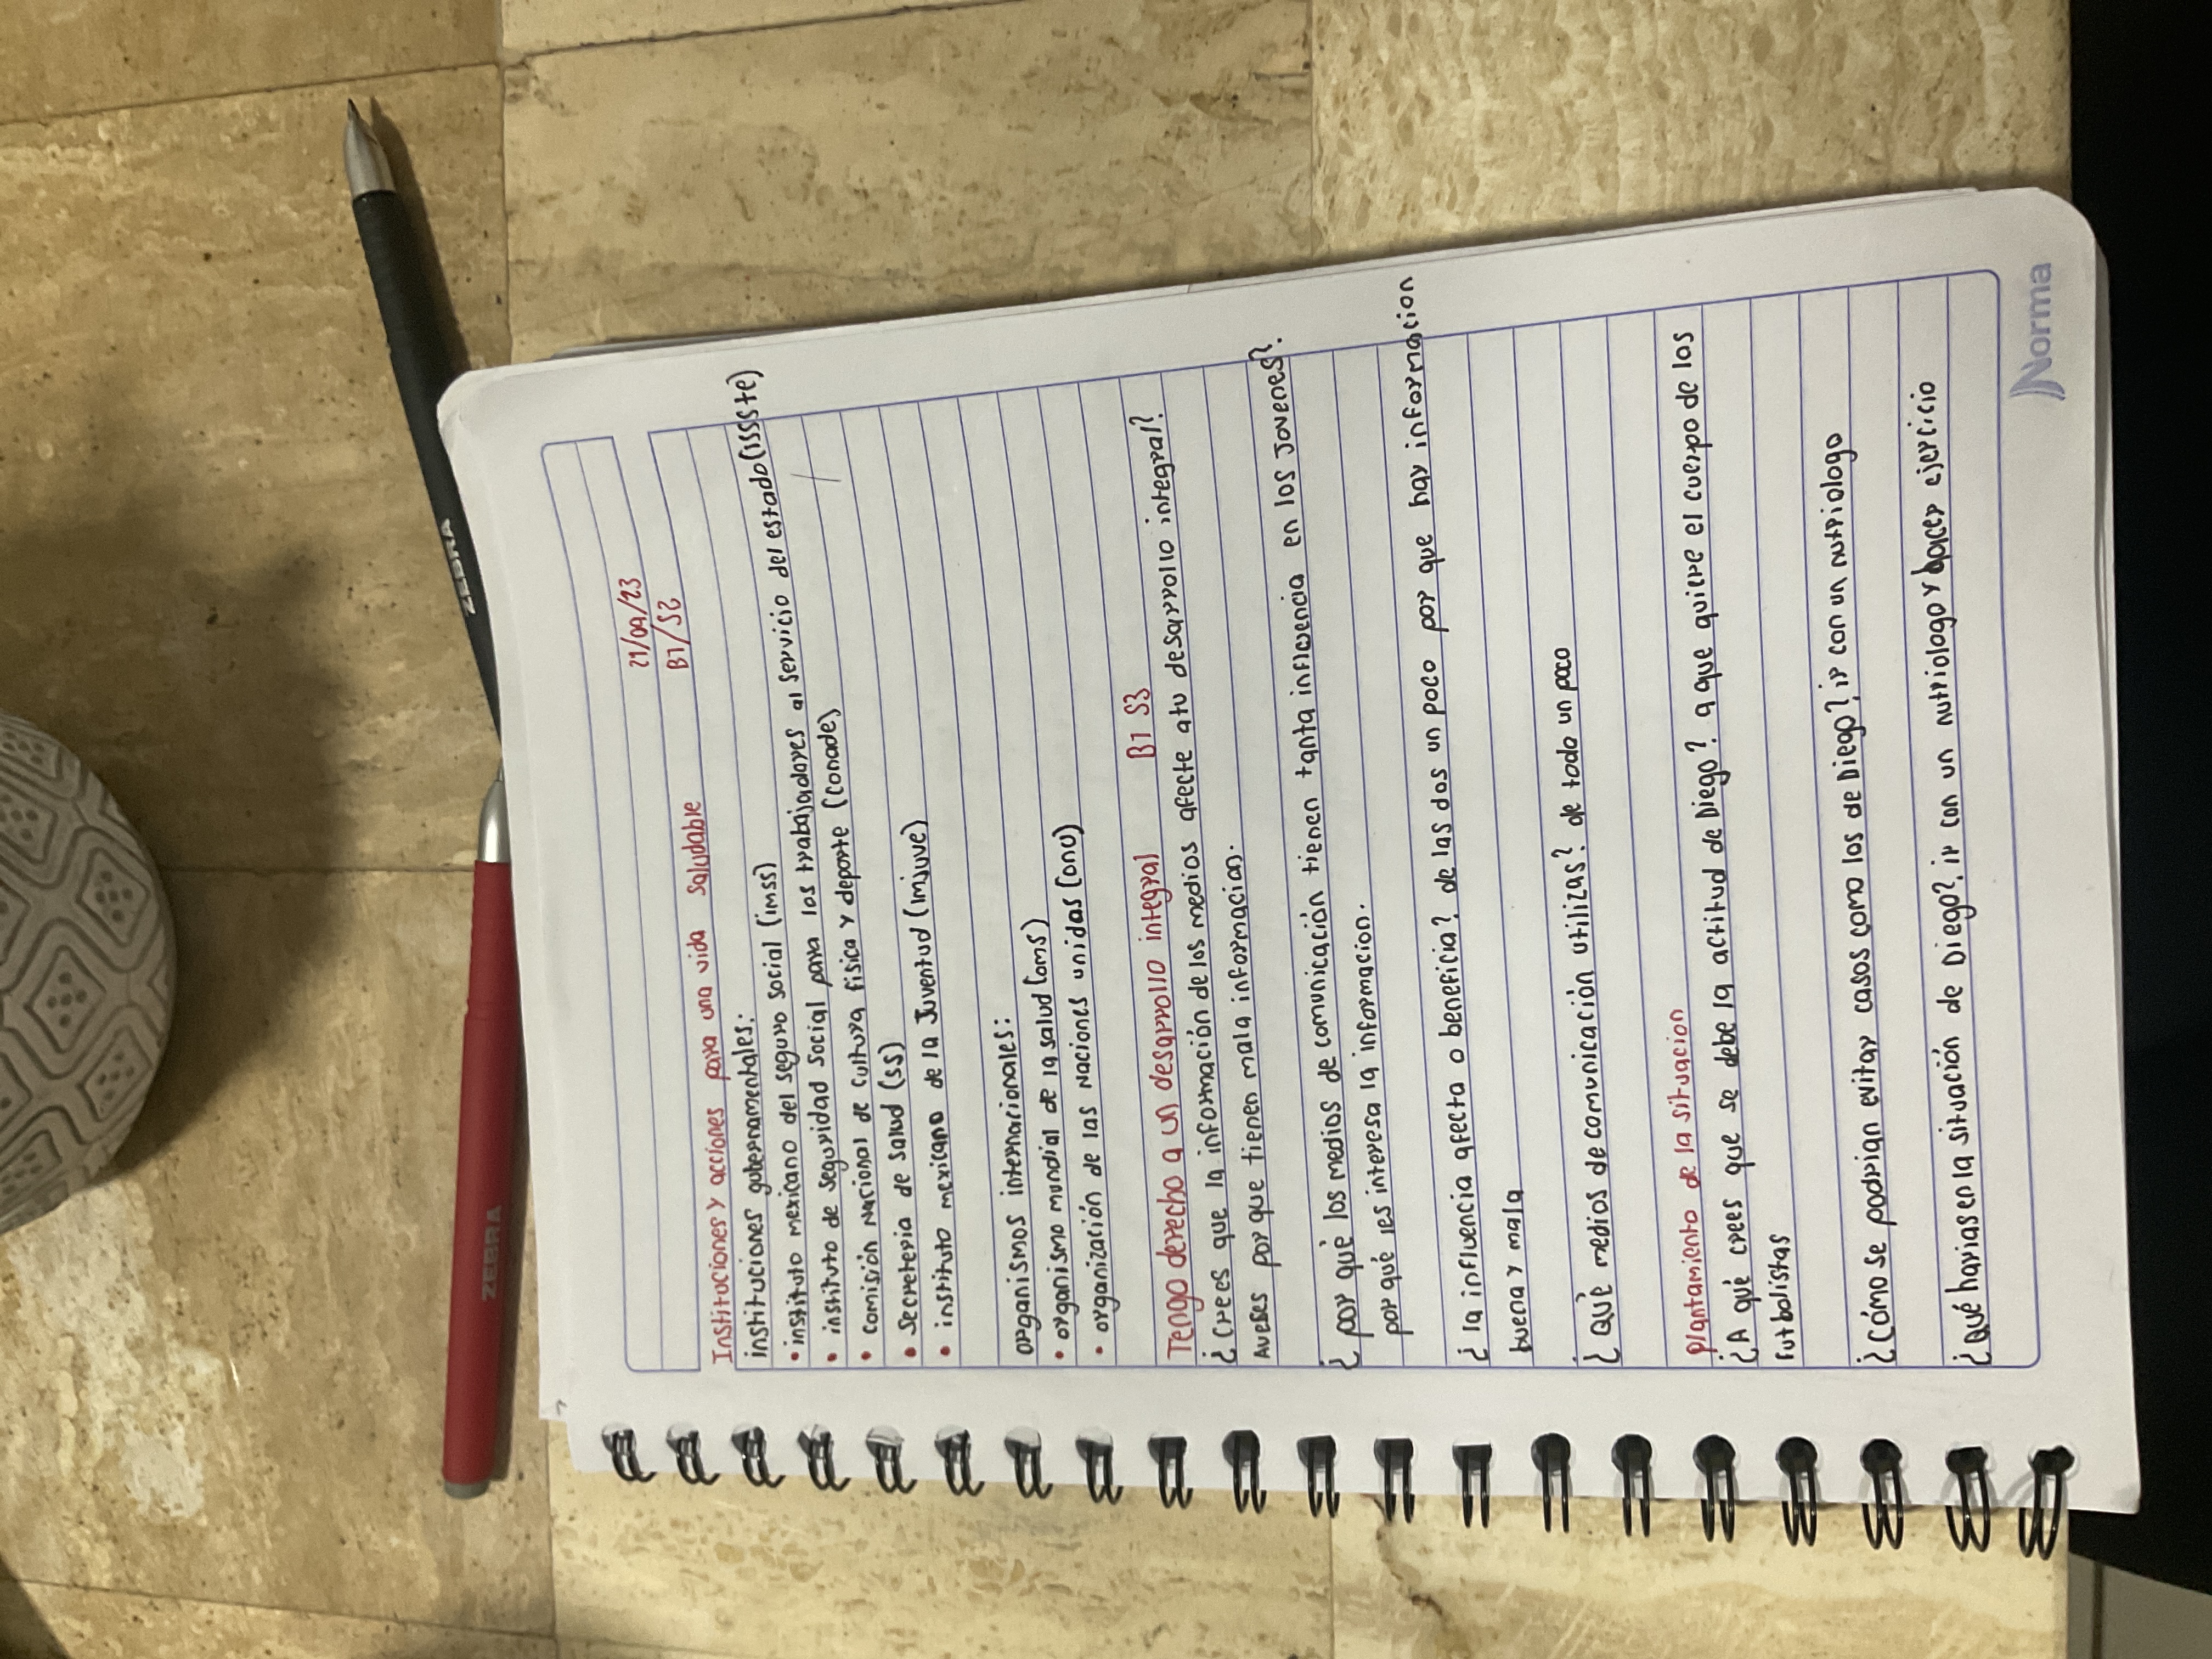 21/09/23
B1/S2
Instituciones y acciones para una vida saludable
instituciones gubernamentales:
• instituto mexicano del seguro social (imss)
• instituto de seguridad social para los trabajadores al servicio del estado (issste)
• comisión nacional de cultura fisica y deporte (conade)
• secreteria de salud (ss)
• instituto mexicano de la Juventud (imjuve)
organismos internacionales:
• organismo mundial de la salud (oms)
• organización de las naciones unidas (onu)
Tengo derecho a un desarrollo integral B1 S3
¿Crees que la información de los medios afecte atu desarrollo integral?
Aveses por que tienen mala informacion.
¿por qué los medios de comunicación tienen tanta influencia en los jovenes?
por qué les interesa la informacion.
¿la influencia afecta o beneficia? de las dos un poco por que hay informacion
buena y mala
¿Qué medios de comunicación utilizas? de todo un poco
plantamiento de la situacion
¿A qué crees que se debe la actitud de Diego? a que quiere el cuerpo de los
futbolistas
¿Cómo se podrian evitar casos como los de Diego? ir con un nutriologo
¿Qué harias en la situación de Diego? ir con un nutriologo y hacer ejercicio
Norma
ZEBRA
ZEBRA